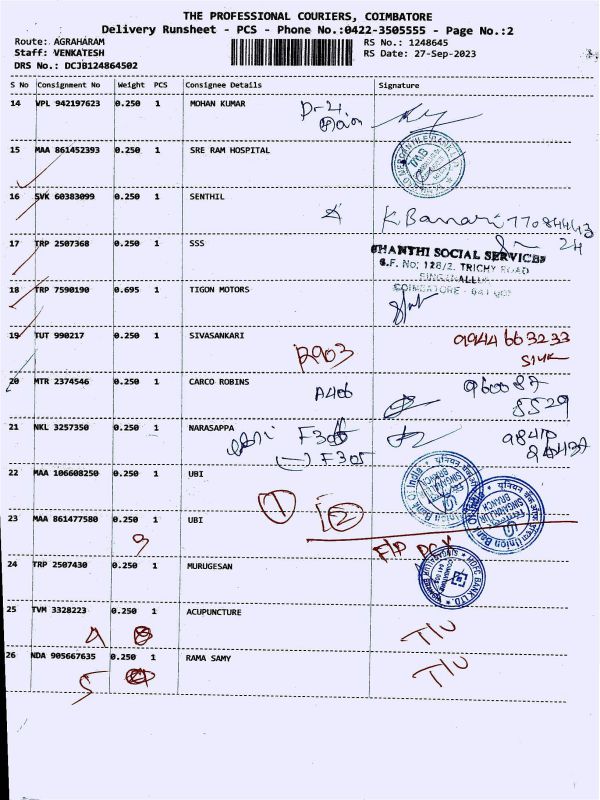 THE PROFESSIONAL COURIERS, COIMBATORE
Delivery Runsheet - PCS - Phone No.:0422-3505555 - Page No.:2
Route: AGRAHARAM RS No.: 1248645
Staff: VENKATESH RS Date: 27-Sep-2023
DRS No.: DCJB124864502
S No Consignment No Weight PCS Consignee Details Signature
14 VPL 942197623 0.250 1 MOHAN KUMAR
15 MAA 861452393 0.250 1 SRE RAM HOSPITAL
16 SVK 60383099 0.250 1 SENTHIL
K Banari 
17 TRP 2507368 0.250 1 SSS
24
SHANTHI SOCIAL SERVICES
S.F. No: 128/2. TRICHY ROAD
SINGANALLUR
COIMBATORE - 641 005
18 TRP 7590190 0.695 1 TIGON MOTORS
19 TUT 990217 0.250 1 SIVASANKARI
R903 9944663233
20 MTR 2374546 0.250 1 CARCO ROBINS
A406 960087
8529
21 NKL 3257350 0.250 1 NARASAPPA
F305
F305
22 MAA 106608250 0.250 1 UBI
Union Bank Of India
SINGANALLUR
BRANCH
1 2
23 MAA 861477580 0.250 1 UBI
3
24 TRP 2507430 0.250 1 MURUGESAN
HDFC BANK LTD.
25 TVM 3328223 0.250 1 ACUPUNCTURE
4 T/U
26 NDA 905667635 0.250 1 RAMA SAMY
5 T/U